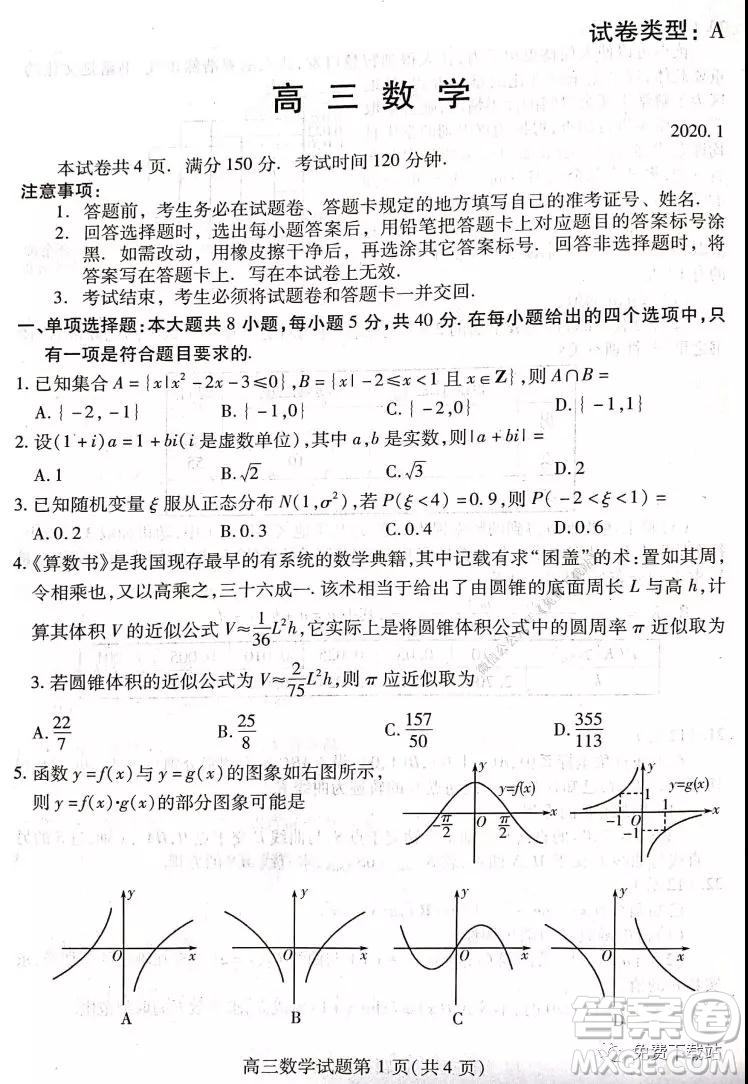 试卷类型：A
高三数学
2020.1
本试卷共4页．满分150分．考试时间120分钟．
注意事项：
1．答题前，考生务必在试题卷、答题卡规定的地方填写自己的准考证号、姓名．
2．回答选择题时，选出每小题答案后，用铅笔把答题卡上对应题目的答案标号涂
黑．如需改动，用橡皮擦干净后，再选涂其它答案标号．回答非选择题时，将
答案写在答题卡上．写在本试卷上无效．
3．考试结束，考生必须将试题卷和答题卡一并交回．
一、单项选择题：本大题共8小题，每小题5分，共40分．在每小题给出的四个选项中，只
有一项是符合题目要求的．
1．已知集合A={x|x²-2x-3≤0}，B={x|-2≤x<1且x∈Z}，则A∩B=
A．{-2，-1} B．{-1，0} C．{-2，0} D．{-1，1}
2．设(1+i)a=1+bi(i是虚数单位)，其中a，b是实数，则|a+bi|=
A．1 B．√2 C．√3 D．2
3．已知随机变量ξ服从正态分布N(1，σ²)，若P(ξ<4)=0.9，则P(-2<ξ<1)=
A．0.2 B．0.3 C．0.4 D．0.6
4．《算数书》是我国现存最早的有系统的数学典籍，其中记载有求“囷盖”的术：置如其周，
令相乘也，又以高乘之，三十六成一．该术相当于给出了由圆锥的底面周长L与高h，计
算其体积V的近似公式V≈1/36L²h，它实际上是将圆锥体积公式中的圆周率π近似取为
3．若圆锥体积的近似公式为V≈2/75L²h，则π应近似取为
A．22/7 B．25/8 C．157/50 D．355/113
5．函数y=f(x)与y=g(x)的图象如右图所示，
则y=f(x)·g(x)的部分图象可能是
y y=f(x) -π/2 O π/2 x
y y=g(x) 1 -1 O 1 -1 x
y O x
y O x
y O x
y O x
A B C D
高三数学试题第1页(共4页)
免费下载站
答案圈
MXQE.COM